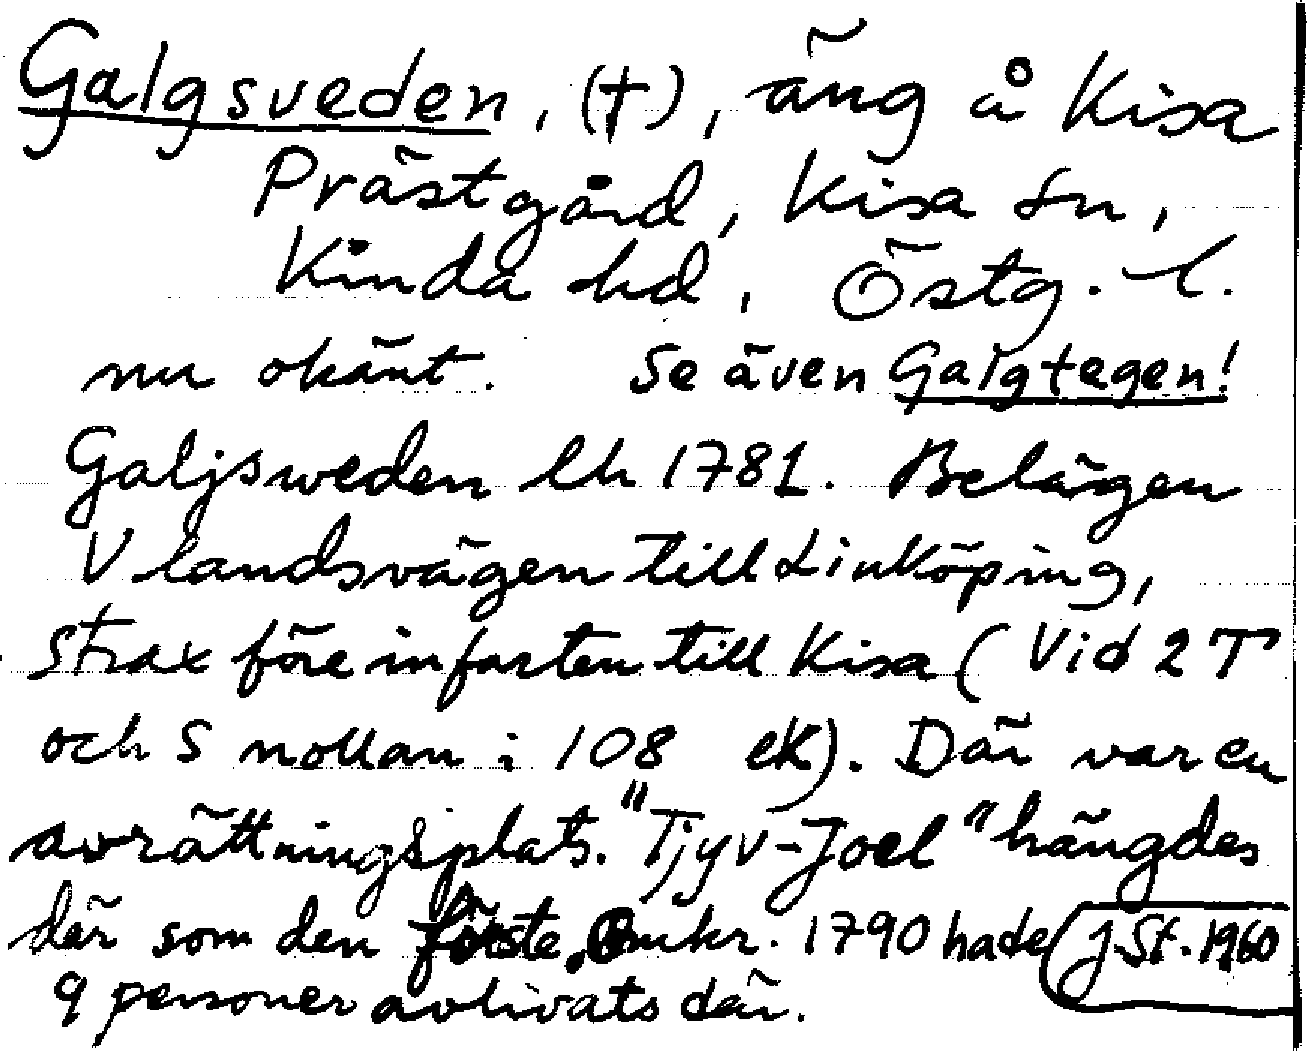 Galgsveden, (†), äng å Kisa
Prästgård, Kisa sn,
Kinda hd, Östg. l.
nu okänt. Se även Galgtegen!
Galjsweden lh 1781. Belägen
V landsvägen till Linköping,
strax före infarten till Kisa (Vid 2 T
och S nollan i 108 ek). Där var en
avrättningsplats. "Tjyv-Joel" hängdes
där som den förste. Omkr. 1790 hade
9 personer avlivats där.
J.St. 1960